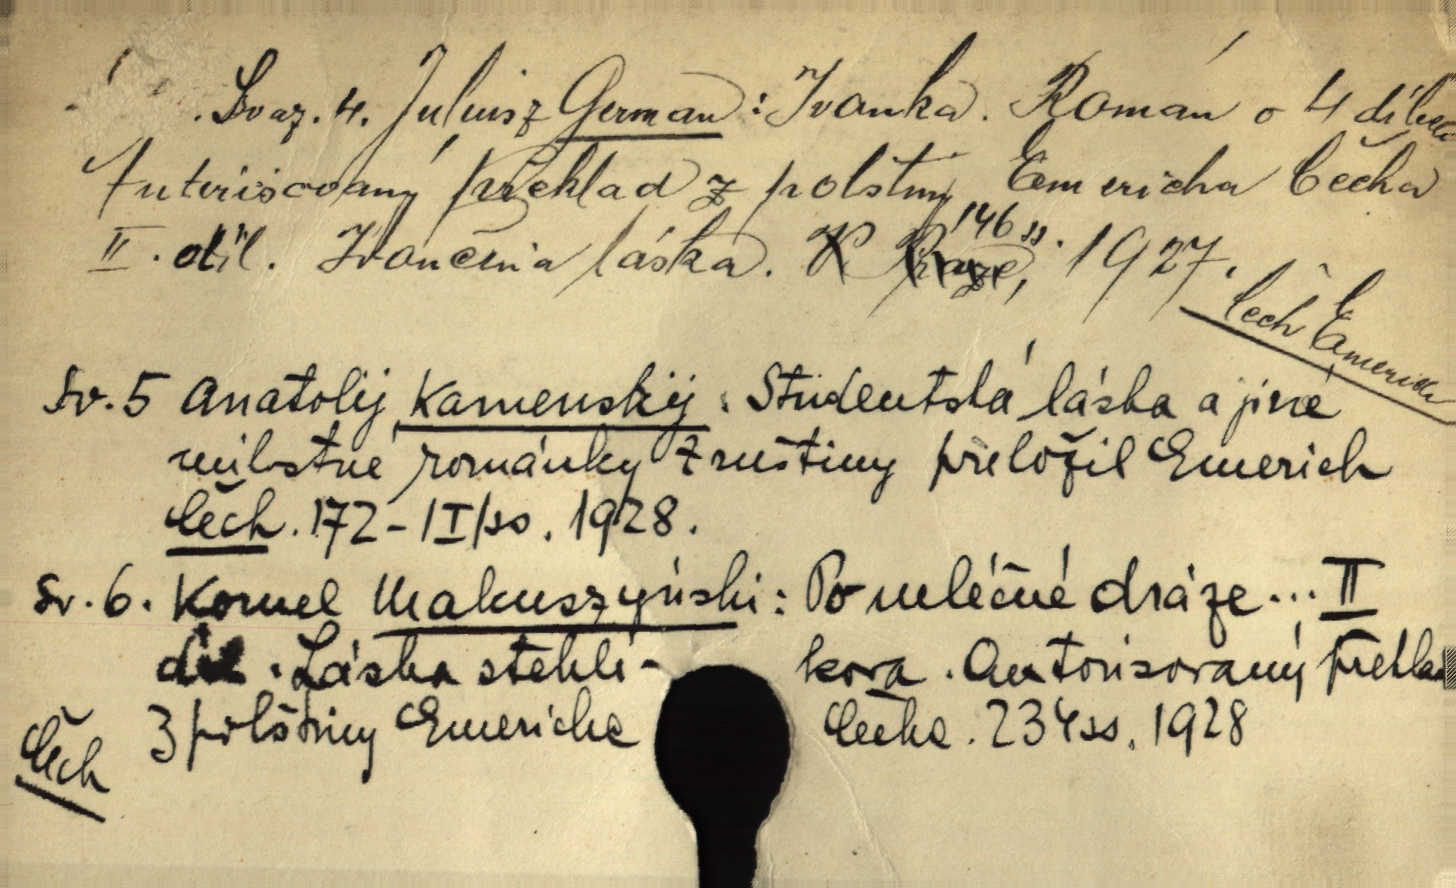 Svaz. 4. Juliusz German: Ivanka. Román o 4 dílech
Autorisovaný překlad z polštiny Emericha Čecha
II. díl. Ivančina láska. V Praze, 146 ss. 1927.
Čech Emerich
Sv. 5 Anatolij Kamenskij: Studentská láska a jiné
milostné románky z ruštiny přeložil Emerich
Čech. 172-II/ss. 1928.
Sv. 6. Kornel Makuszyński: Po mléčné dráze... II
díl. Láska stehlíkova. Autorisovaný překlad
z polštiny Emericha Čecha. 234 ss. 1928
Čech